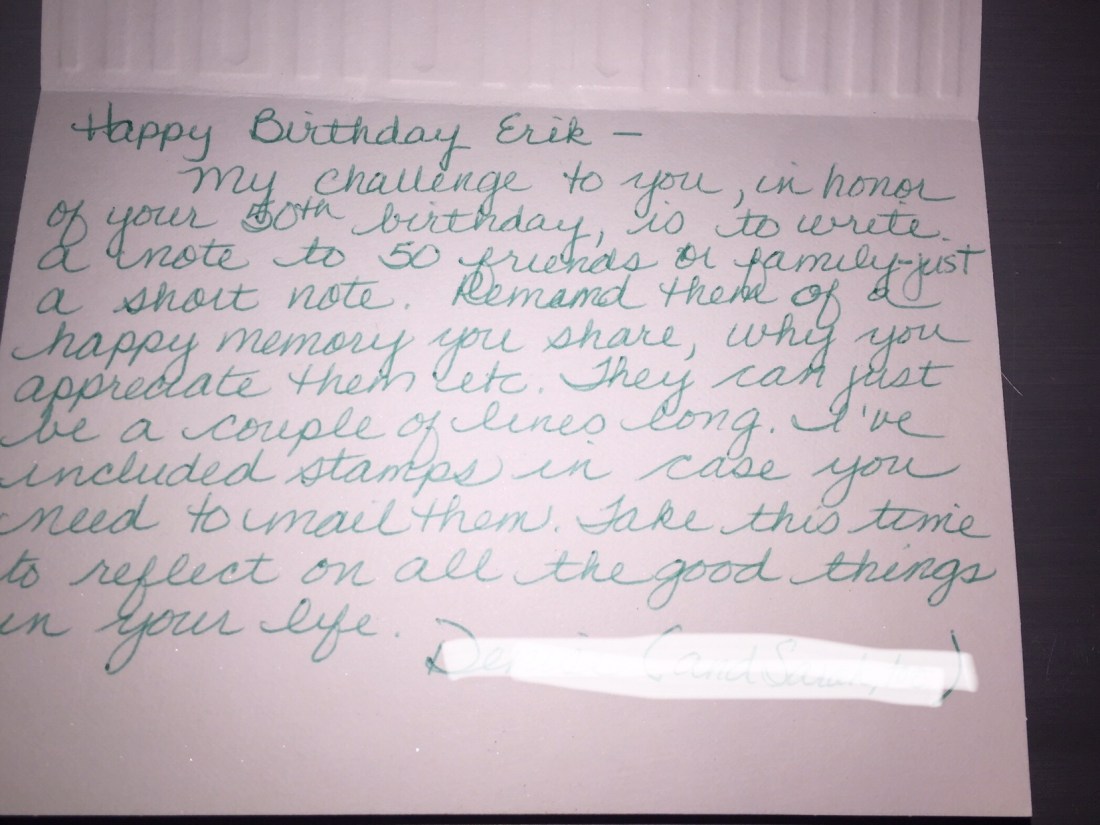 Happy Birthday Erik —
My challenge to you, in honor
of your 50th birthday, is to write
a note to 50 friends or family-just
a short note. Remamd them of a
happy memory you share, why you
appreciate them etc. They can just
be a couple of lines long. I've
included stamps in case you
need to mail them. Take this time
to reflect on all the good things
in your life.
(and